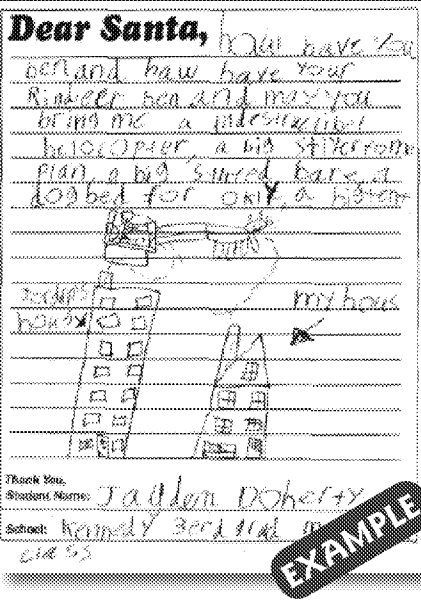 Dear Santa, haw have you
ben and haw have your
Rindeer ben and may you
bring me a indestructibel
helocopter, a big
plan, a big stufed bare, a
dogbed for okiy, a big tent
my hous
hous
Thank You,
Student Name: Jayden Doherty
School: Kennedy 3erd grad
class
EXAMPLE